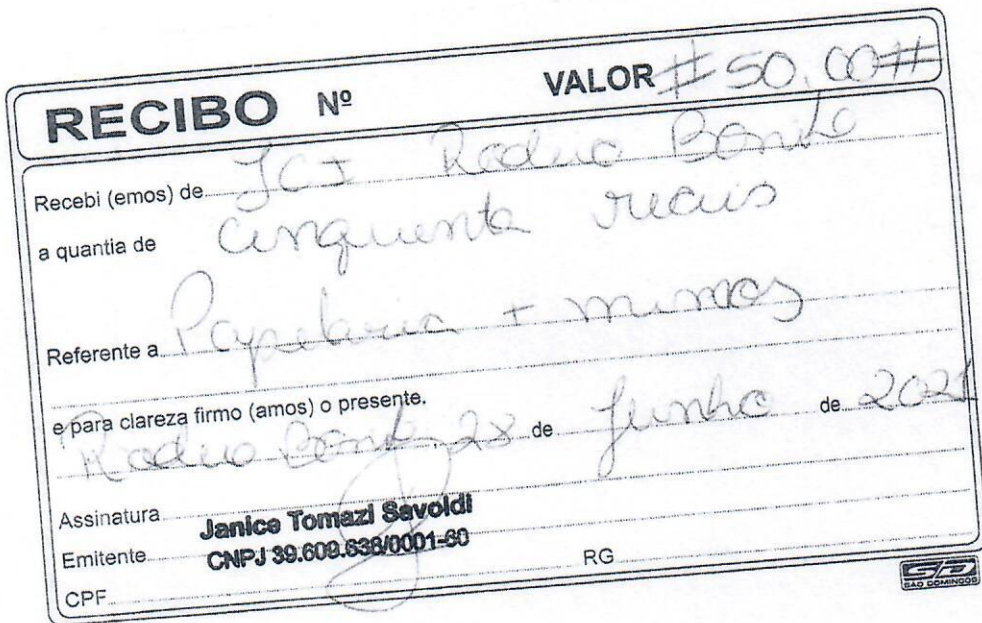 RECIBO Nº VALOR # 50,00 #
Recebi (emos) de JCI Rodeio Bonito
a quantia de cinquenta reais
Referente a Papelaria + mimos
e para clareza firmo (amos) o presente.
Rodeio Bonito, 28 de Junho de 2021
Assinatura
Janice Tomazi Savoldi
Emitente CNPJ 39.609.638/0001-60
CPF RG
SÃO DOMINGOS